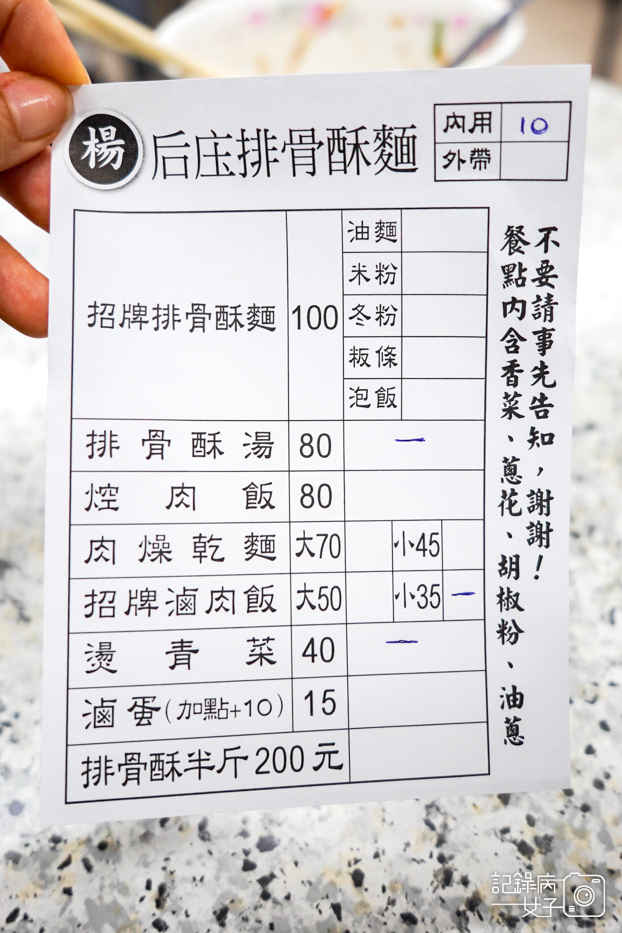 楊
后庄排骨酥麵
內用 10
外帶
招牌排骨酥麵 100
油麵
米粉
冬粉
粄條
泡飯
排骨酥湯 80 一
焢肉飯 80
肉燥乾麵 大70 小45
招牌滷肉飯 大50 小35 一
燙青菜 40 一
滷蛋(加點+10) 15
排骨酥半斤200元
餐點內含香菜、蔥花、胡椒粉、油蔥
不要請事先告知，謝謝！
記錄病
一女子